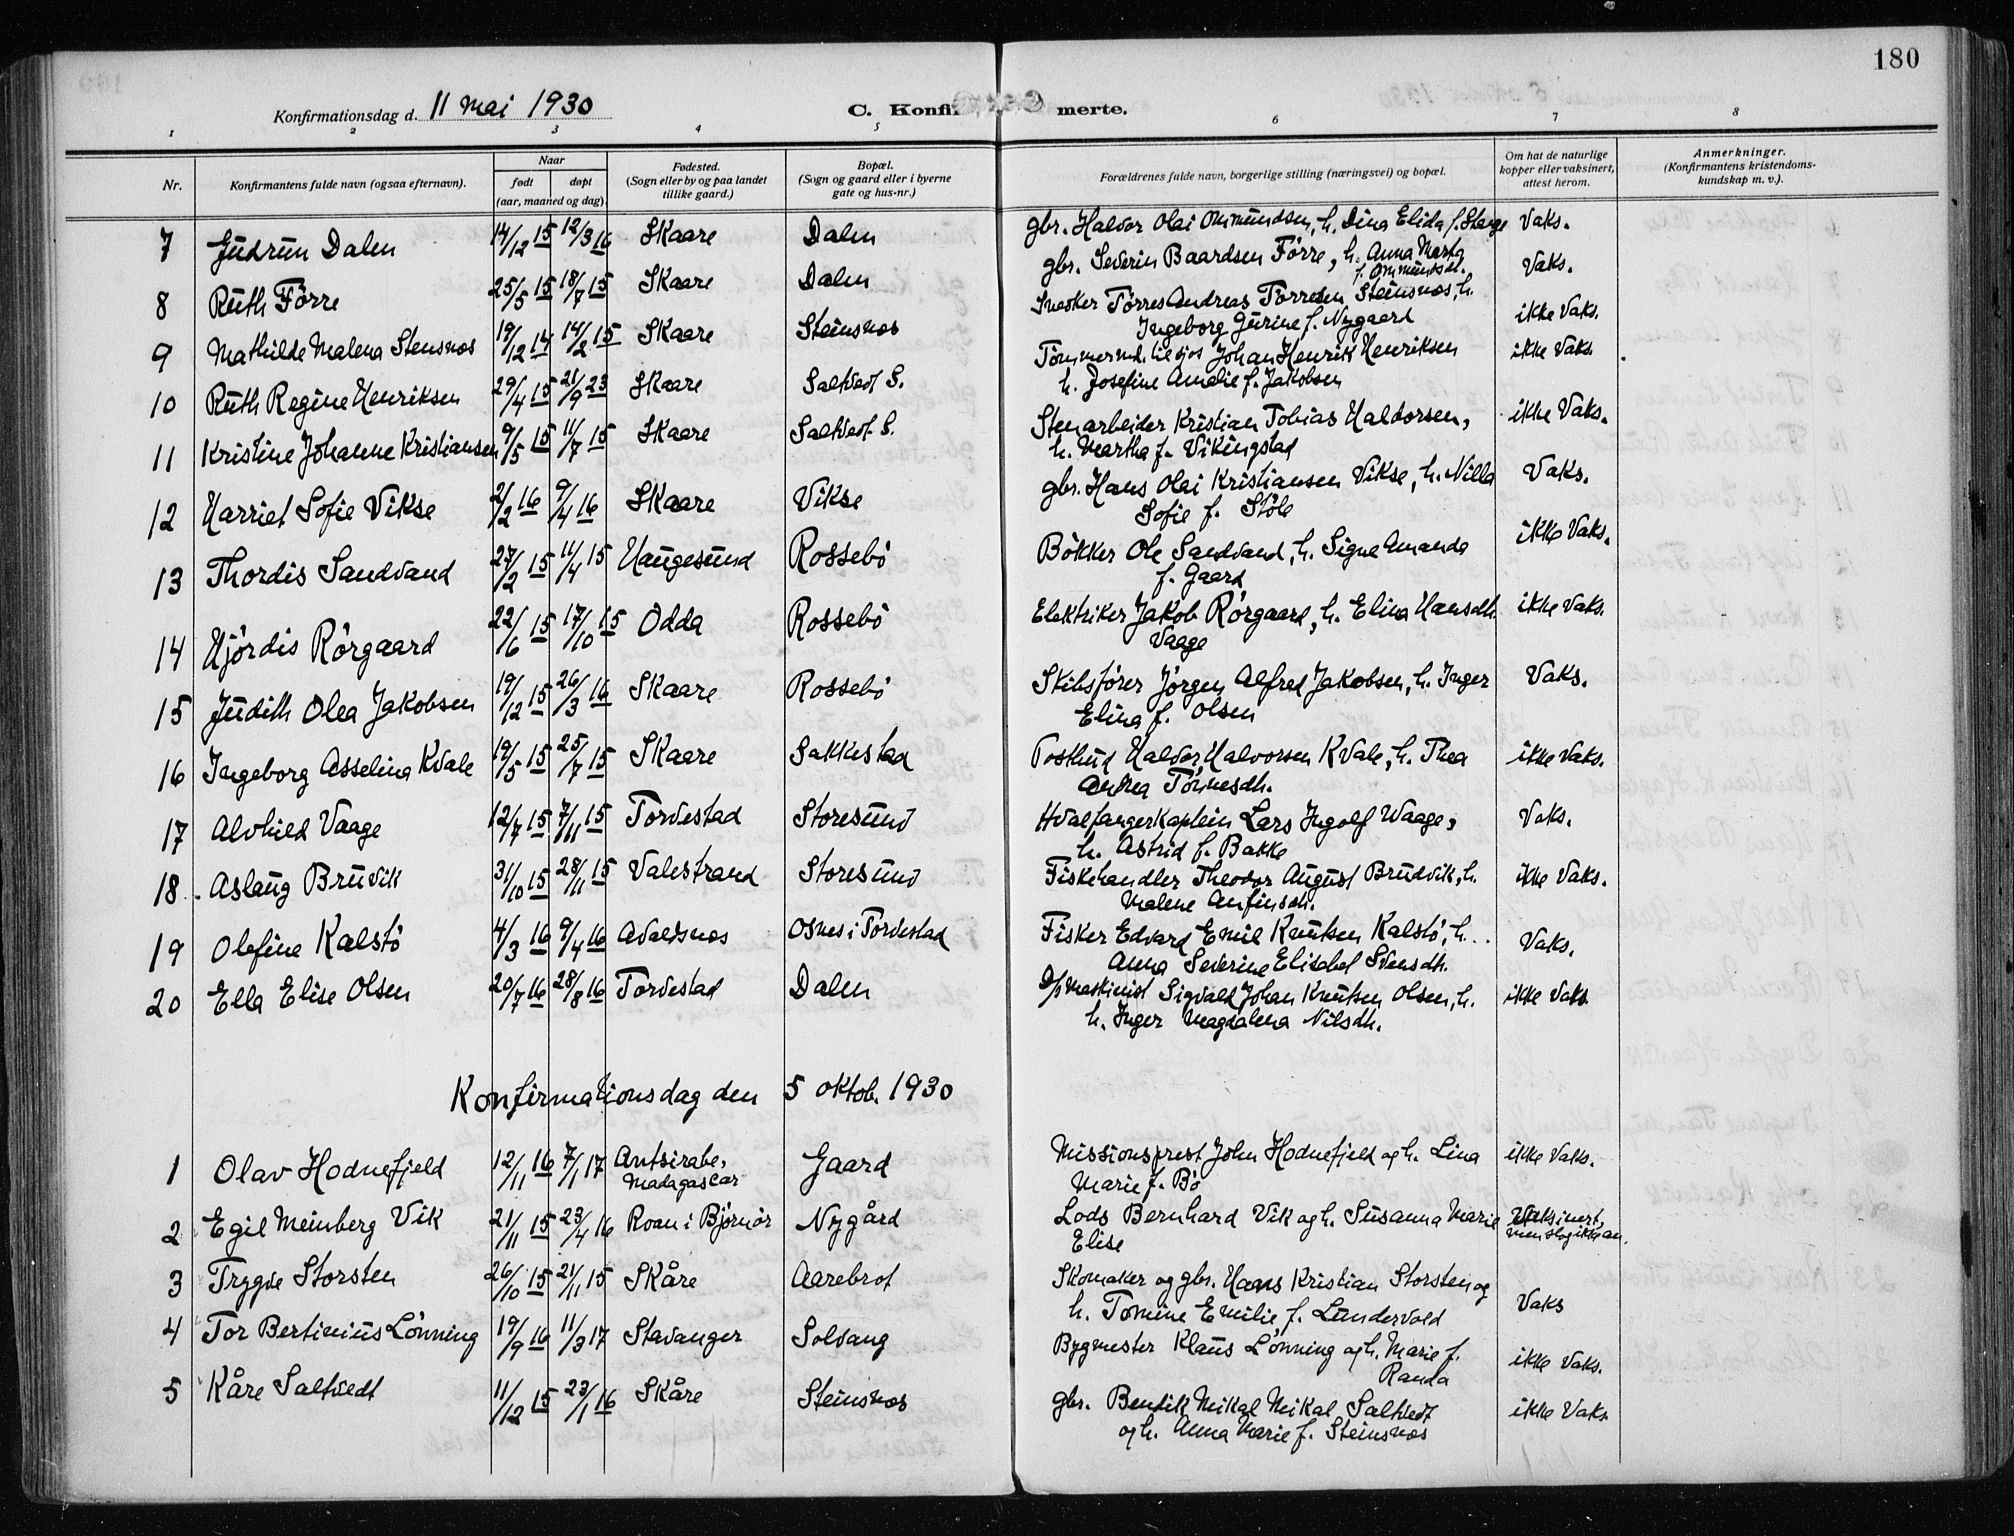 180
Konfirmationsdag d. 11 mai 1930 C. Konfi merte.
1 2 3 4 5 6 7 8
Nr. Konfirmantens fulde navn (ogsaa efternavn). Naar født døpt (aar, maaned og dag). Fødested. (Sogn eller by og paa landet tillike gaard.) Bopæl. (Sogn og gaard eller i byerne gate og hus-nr.) Forældrenes fulde navn, borgerlige stilling (næringsvei) og bopæl. Om hat de naturlige kopper eller vaksinert, attest herom. Anmerkninger. (Konfirmantens kristendoms-kundskap m. v.).
7 Gudrun Dalen 14/12 15 12/3 16 Skaare Dalen gbr. Haldor Olai Ommundsen, h. Dina Elida f. Stange Vaks.
8 Ruth Førre 25/5 15 18/7 15 Skaare Dalen gbr. Severin Baardsen Førre, h. Anna Marta
f. Ommundsd. Vaks.
9 Mathilde Malena Stensnos 19/12 14 14/2 15 Skaare Steinsnos Snekker Tørres Andreas Torresen Steinsnos, h.
Ingeborg Gurine f. Nygaard ikke Vaks.
10 Ruth Regine Henriksen 29/4 15 21/9 23 Skaare Saltvedt S. Tømmermd. tilsjøs Johan Henrik Henriksen
h. Josefine Amelie f. Jakobsen ikke Vaks.
11 Kristine Johanne Kristiansen 9/5 15 11/7 15 Skaare Saltvedt S. Stenarbeider Kristian Tobias Haldorsen,
h. Martha f. Vikingstad ikke Vaks.
12 Harriet Sofie Vikse 2/2 16 9/4 16 Skaare Vikse gbr. Hans Olai Kristiansen Vikse, h. Nilla
Sofie f. Støle Vaks.
13 Thordis Sandvand 27/2 15 11/4 15 Haugesund Rossebø Bøkker Ole Sandvand, h. Signe Amanda
f. Gaard ikke Vaks.
14 Hjørdis Rørgaard 22/6 15 17/10 15 Odda Rossebø Elektriker Jakob Rørgaard, h. Elina Hansdh.
Vaage ikke Vaks.
15 Judith Olea Jakobsen 19/12 15 26/3 16 Skaare Rossebø Skibsfører Jørgen Alfred Jakobsen, h. Inger
Elina f. Olsen Vaks.
16 Ingeborg Asselina Kvale 19/5 15 25/7 15 Skaare Sakkestad Postbud Haldor Halvorsen Kvale, h. Thea
Andrea Tønnesdh. ikke Vaks.
17 Alvhild Vaage 12/7 15 7/11 15 Torvestad Storesund Hvalfangerkaptein Lars Ingolf Waage,
h. Astrid f. Bakke Vaks.
18 Aslaug Bruvik 31/10 15 28/11 15 Valestrand Storesund Fiskehandler Theodor August Brudvik, h.
Malene Anfinsdh. ikke Vaks.
19 Olefine Kalstø 4/3 16 9/4 16 Avaldsnos Osnes i Torvestad Fisker Edvard Emil Knutsen Kalstø, h.
Anna Severine Elisabet Svensdh. Vaks.
20 Ella Elise Olsen 20/7 16 28/8 16 Torvestad Dalen D/s maskinist Sigvald Johan Knutsen Olsen, h.
h. Inger Magdalena Nilsdh. ikke Vaks
Konfirmationsdag den 5 oktob. 1930
1 Olav Hodnefjeld 12/11 16 7/1 17 Antsirabe, Madagascar Gaard Missionsprest John Hodnefjeld og h. Lina
Marie f. Bø ikke Vaks.
2 Egil Meinberg Vik 21/11 15 23/4 16 Roan i Bjørnør Nygård Lods Bernhard Vik og h. Susanna Marie
Elise Vaksinert, men slog ikke an.
3 Trygve Storsten 26/10 15 21/11 15 Skåre Aarebrot Skomaker og gbr. Hans Kristian Storsten og
h. Tomine Emilie f. Landervold Vaks
4 Tor Bertinius Lønning 19/9 16 11/3 17 Stavanger Solvang Bygmester Klaus Lønning og h. Marie f.
Randa ikke Vaks.
5 Kåre Saltvedt 11/12 15 23/1 16 Skåre Steinsnos gbr. Bendik Mikal Mikal Saltvedt
og h. Anna Marie f. Steinsnos ikke Vaks.